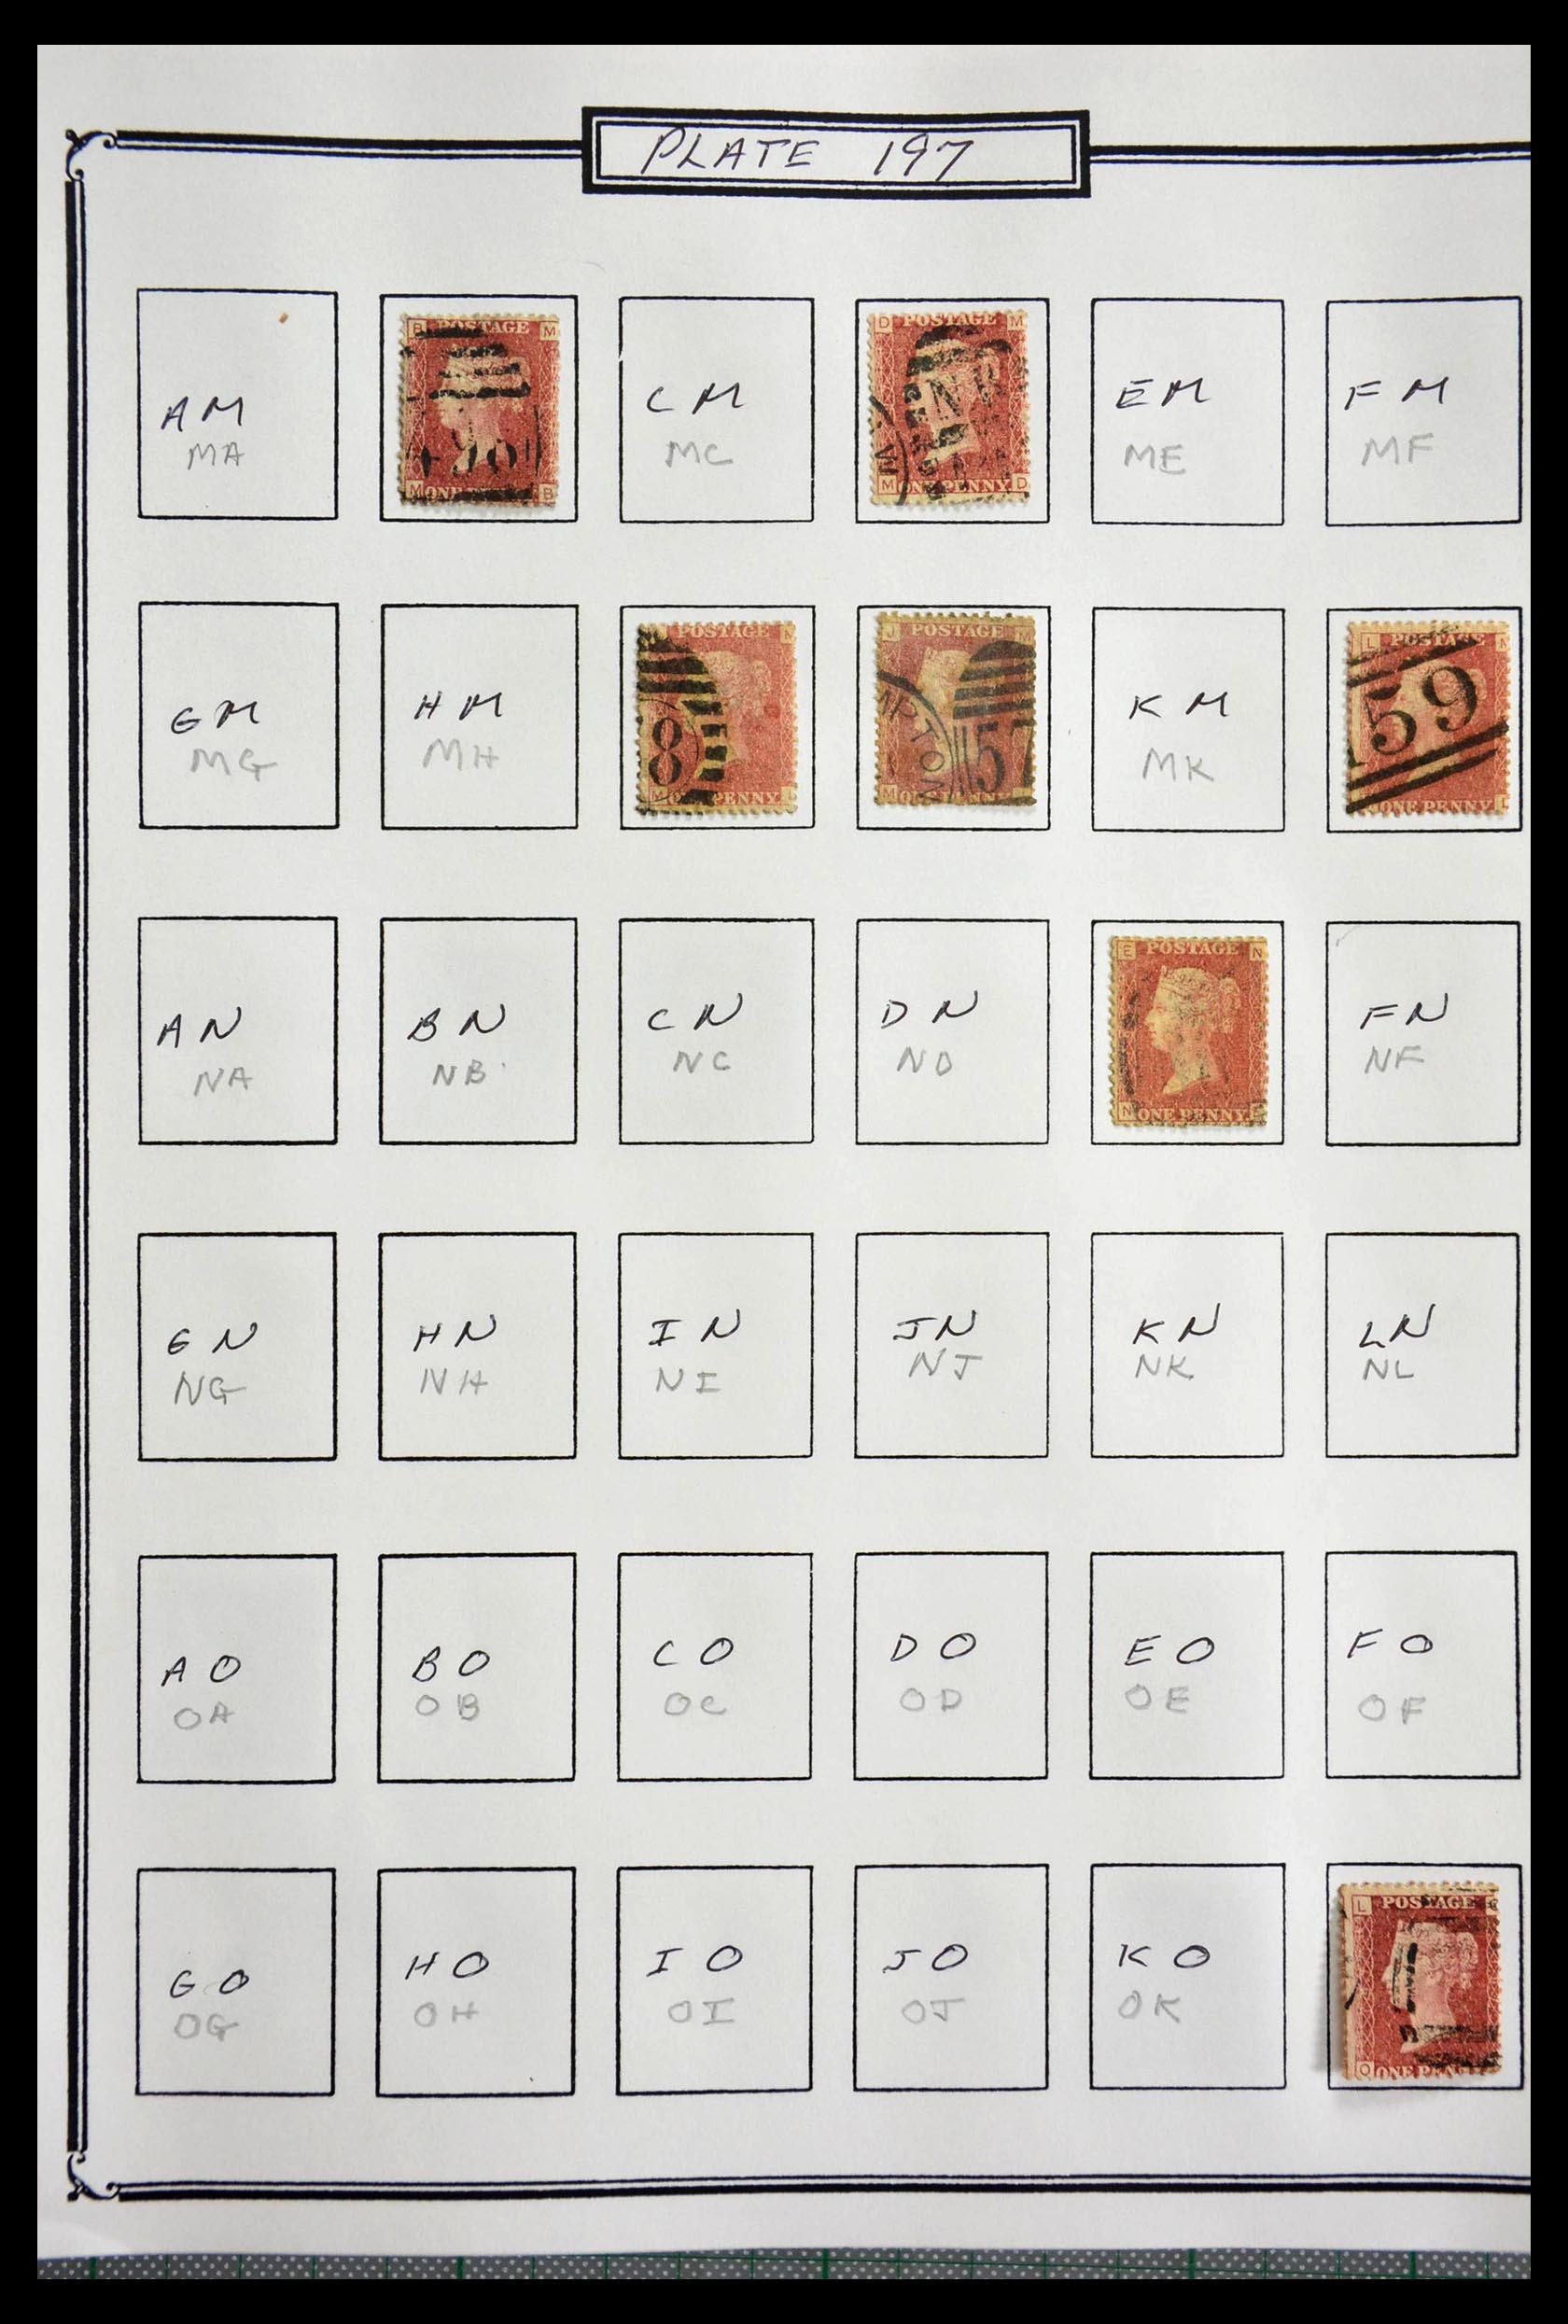 PLATE 197
AM
MA
B POSTAGE M
M B
CM
MC
D POSTAGE M
M ONE PENNY D
EM
ME
FM
MF
GM
MG
HM
MH
POSTAGE
8
PENNY
J POSTAGE M
PTON
5
M
KM
MK
L POSTAGE
59
ONE PENNY L
AN
NA
BN
NB
CN
NC
DN
ND
E POSTAGE N
N ONE PENNY E
FN
NF
GN
NG
HN
NH
IN
NI
JN
NJ
KN
NK
LN
NL
AO
OA
BO
OB
CO
OC
DO
OD
EO
OE
FO
OF
GO
OG
HO
OH
IO
OI
JO
OJ
KO
OK
L POSTAGE
O ONE PENNY